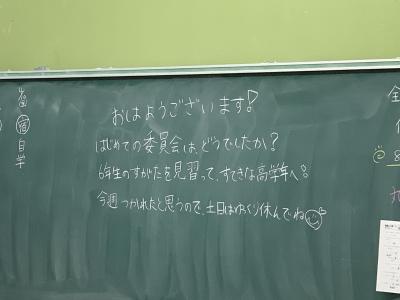 おはようございます!
はじめての委員会は、どうでしたか?
6年生のすがたを見習って、すてきな高学年へ!
今週つかれたと思うので、土日はゆっくり休んでね
宿
自学
全